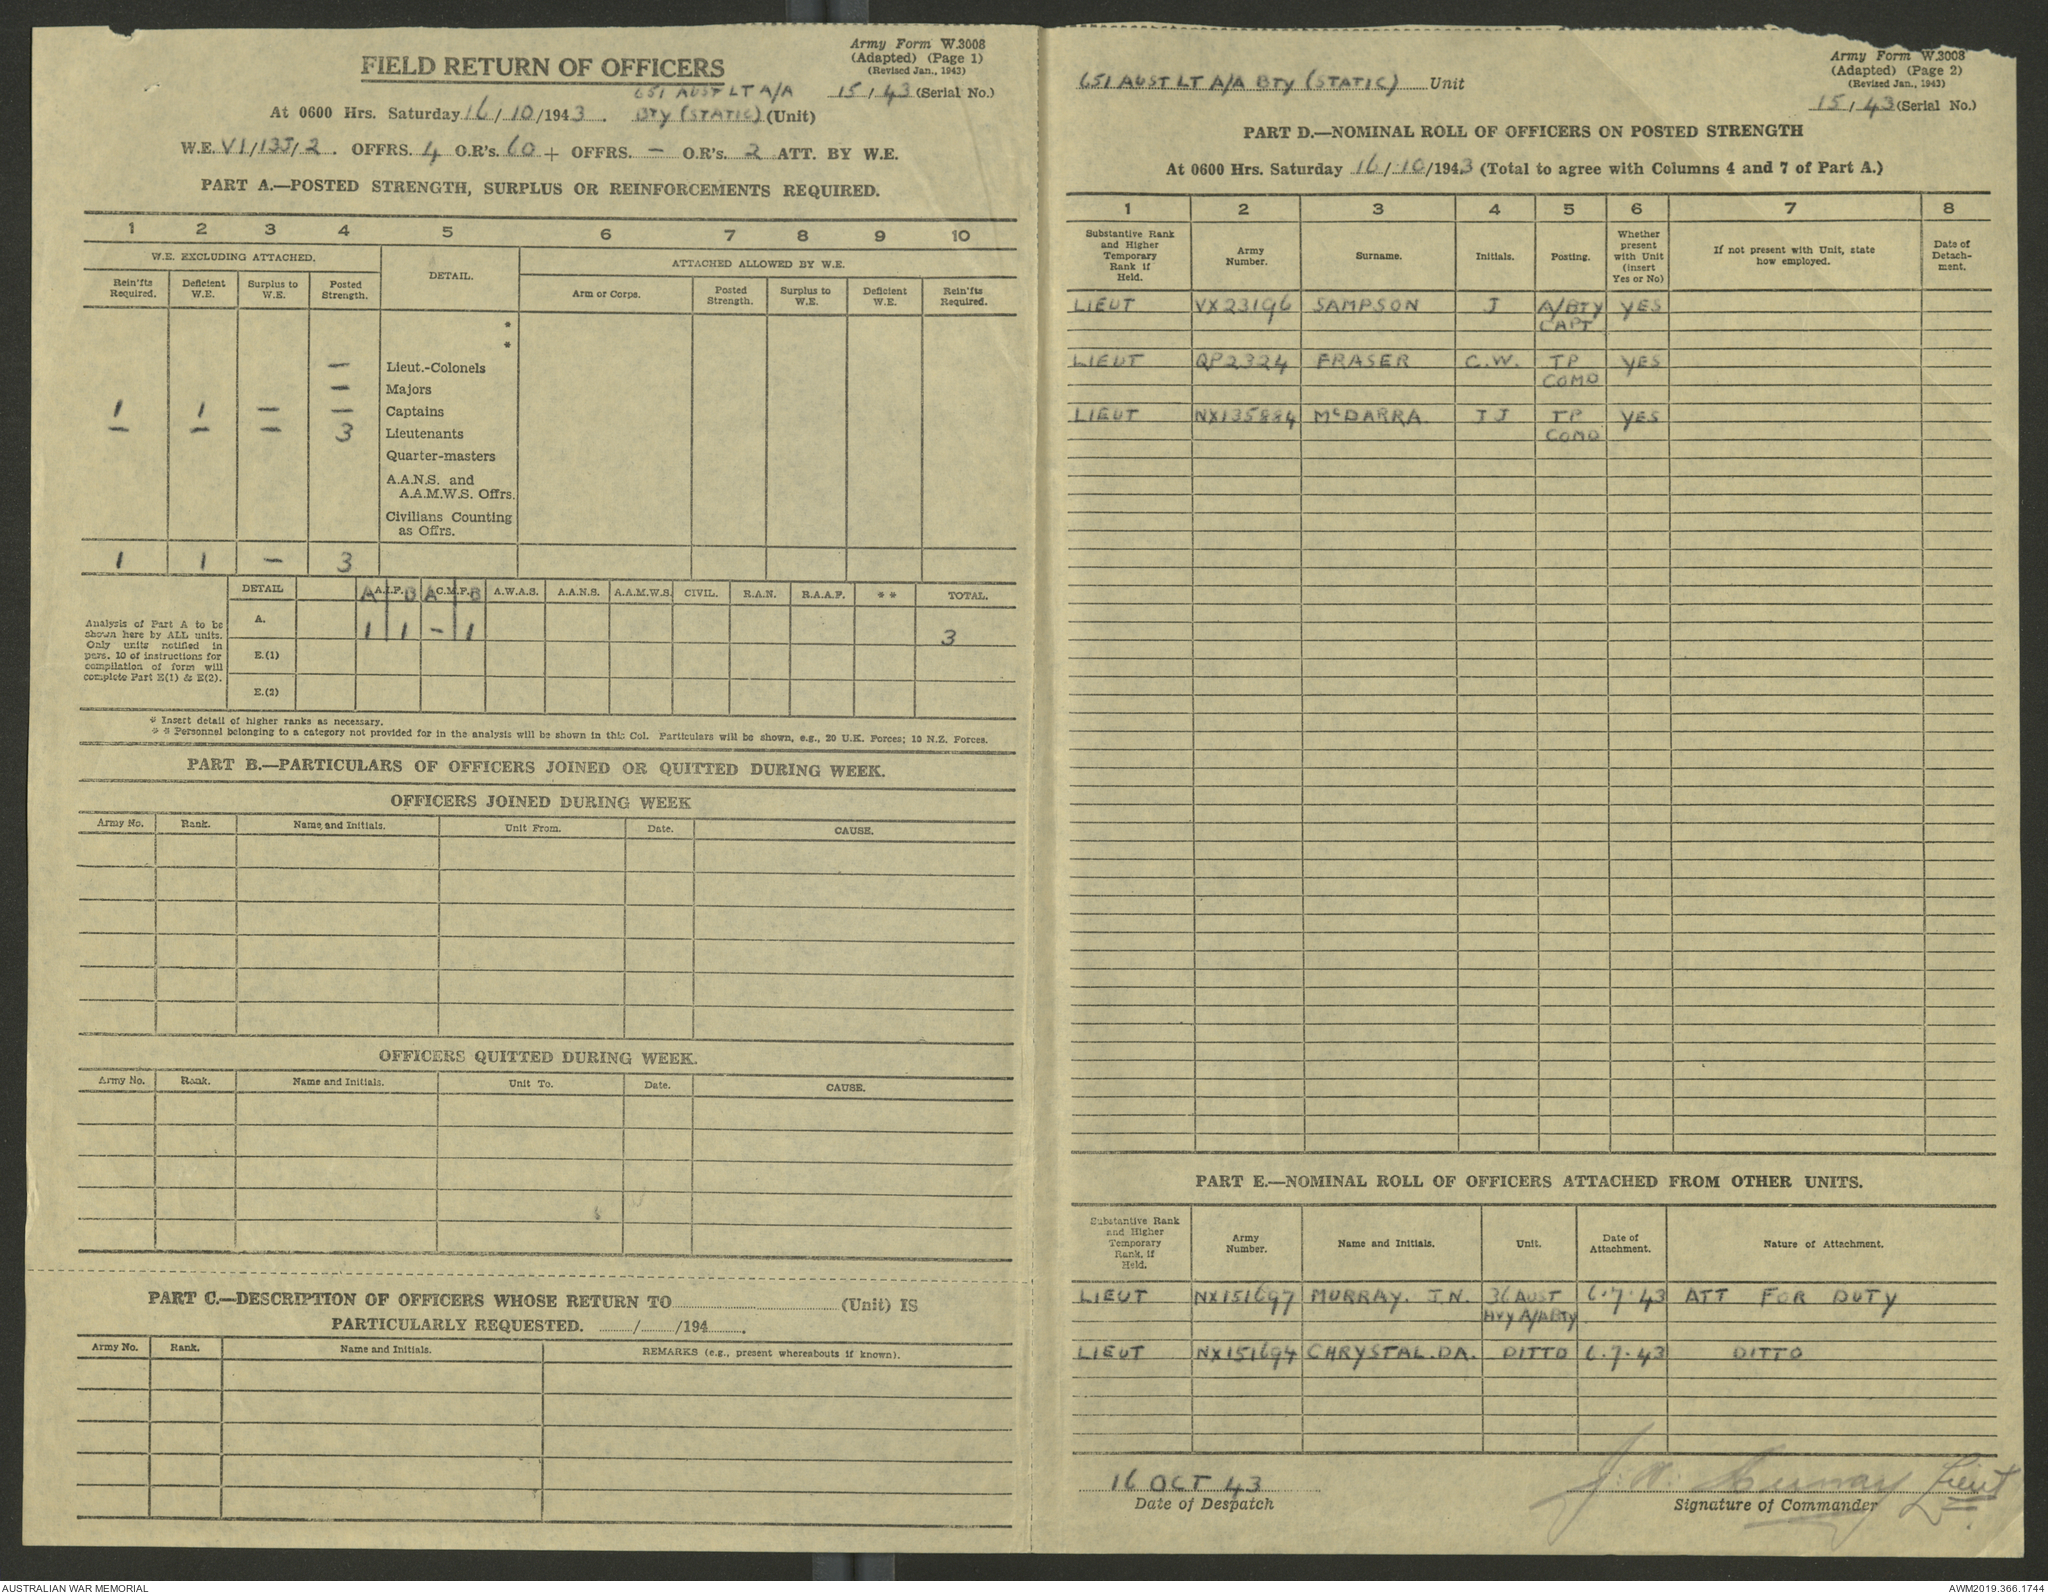 Army Form W.3008
(Adapted) (Page 1)
(Revised Jan., 1943)
FIELD RETURN OF OFFICERS
651 AUST LT A/A 15/43 (Serial No.)
At 0600 Hrs. Saturday 16/10/1943. BTY (STATIC) (Unit)
W.E. VI/13J/2. OFFRS. 4 O.R's. 60 + OFFRS. — O.R's. 2 ATT. BY W.E.
PART A.—POSTED STRENGTH, SURPLUS OR REINFORCEMENTS REQUIRED.
1 2 3 4 5 6 7 8 9 10
W.E. EXCLUDING ATTACHED. DETAIL. ATTACHED ALLOWED BY W.E.
Rein'fts Required. Deficient W.E. Surplus to W.E. Posted Strength. Arm or Corps. Posted Strength. Surplus to W.E. Deficient W.E. Rein'fts Required.
*
*
— Lieut.-Colonels
— Majors
1 1 — — Captains
— — — 3 Lieutenants
Quarter-masters
A.A.N.S. and
A.A.M.W.S. Offrs.
Civilians Counting
as Offrs.
1 1 — 3
DETAIL A A.I.F. B A C.M.F. B A.W.A.S. A.A.N.S. A.A.M.W.S. CIVIL. R.A.N. R.A.A.F. * * TOTAL.
A. 1 1 - 1 3
E.(1)
E.(2)
Analysis of Part A to be
shown here by ALL units.
Only units notified in
para. 10 of instructions for
compilation of form will
complete Part E(1) & E(2).
* Insert detail of higher ranks as necessary.
* * Personnel belonging to a category not provided for in the analysis will be shown in this Col. Particulars will be shown, e.g., 20 U.K. Forces; 10 N.Z. Forces.
PART B.—PARTICULARS OF OFFICERS JOINED OR QUITTED DURING WEEK.
OFFICERS JOINED DURING WEEK
Army No. Rank. Name and Initials. Unit From. Date. CAUSE.
OFFICERS QUITTED DURING WEEK.
Army No. Rank. Name and Initials. Unit To. Date. CAUSE.
PART C.—DESCRIPTION OF OFFICERS WHOSE RETURN TO (Unit) IS
PARTICULARLY REQUESTED. / /194 .
Army No. Rank. Name and Initials. REMARKS (e.g., present whereabouts if known).
Army Form W.3008
(Adapted) (Page 2)
(Revised Jan., 1943)
651 AUST LT A/A BTY (STATIC) Unit
15/43 (Serial No.)
PART D.—NOMINAL ROLL OF OFFICERS ON POSTED STRENGTH
At 0600 Hrs. Saturday 16/10/1943 (Total to agree with Columns 4 and 7 of Part A.)
1 2 3 4 5 6 7 8
Substantive Rank and Higher Temporary Rank if Held. Army Number. Surname. Initials. Posting. Whether present with Unit (insert Yes or No) If not present with Unit, state how employed. Date of Detach-ment.
LIEUT VX23196 SAMPSON J A/BTY YES
CAPT
LIEUT QP2324 FRASER C.W. TP YES
COMD
LIEUT NX135884 McDARRA. JJ TP YES
COMD
PART E.—NOMINAL ROLL OF OFFICERS ATTACHED FROM OTHER UNITS.
Substantive Rank and Higher Temporary Rank, if Held. Army Number. Name and Initials. Unit. Date of Attachment. Nature of Attachment.
LIEUT NX151697 MURRAY. J.N. 36 AUST 6.7.43 ATT FOR DUTY
HVY A/A BTY
LIEUT NX151694 CHRYSTAL. DA. DITTO 6.7.43 DITTO
16 OCT 43 J. N. Murray Lieut
Date of Despatch Signature of Commander
AUSTRALIAN WAR MEMORIAL AWM2019.366.1744